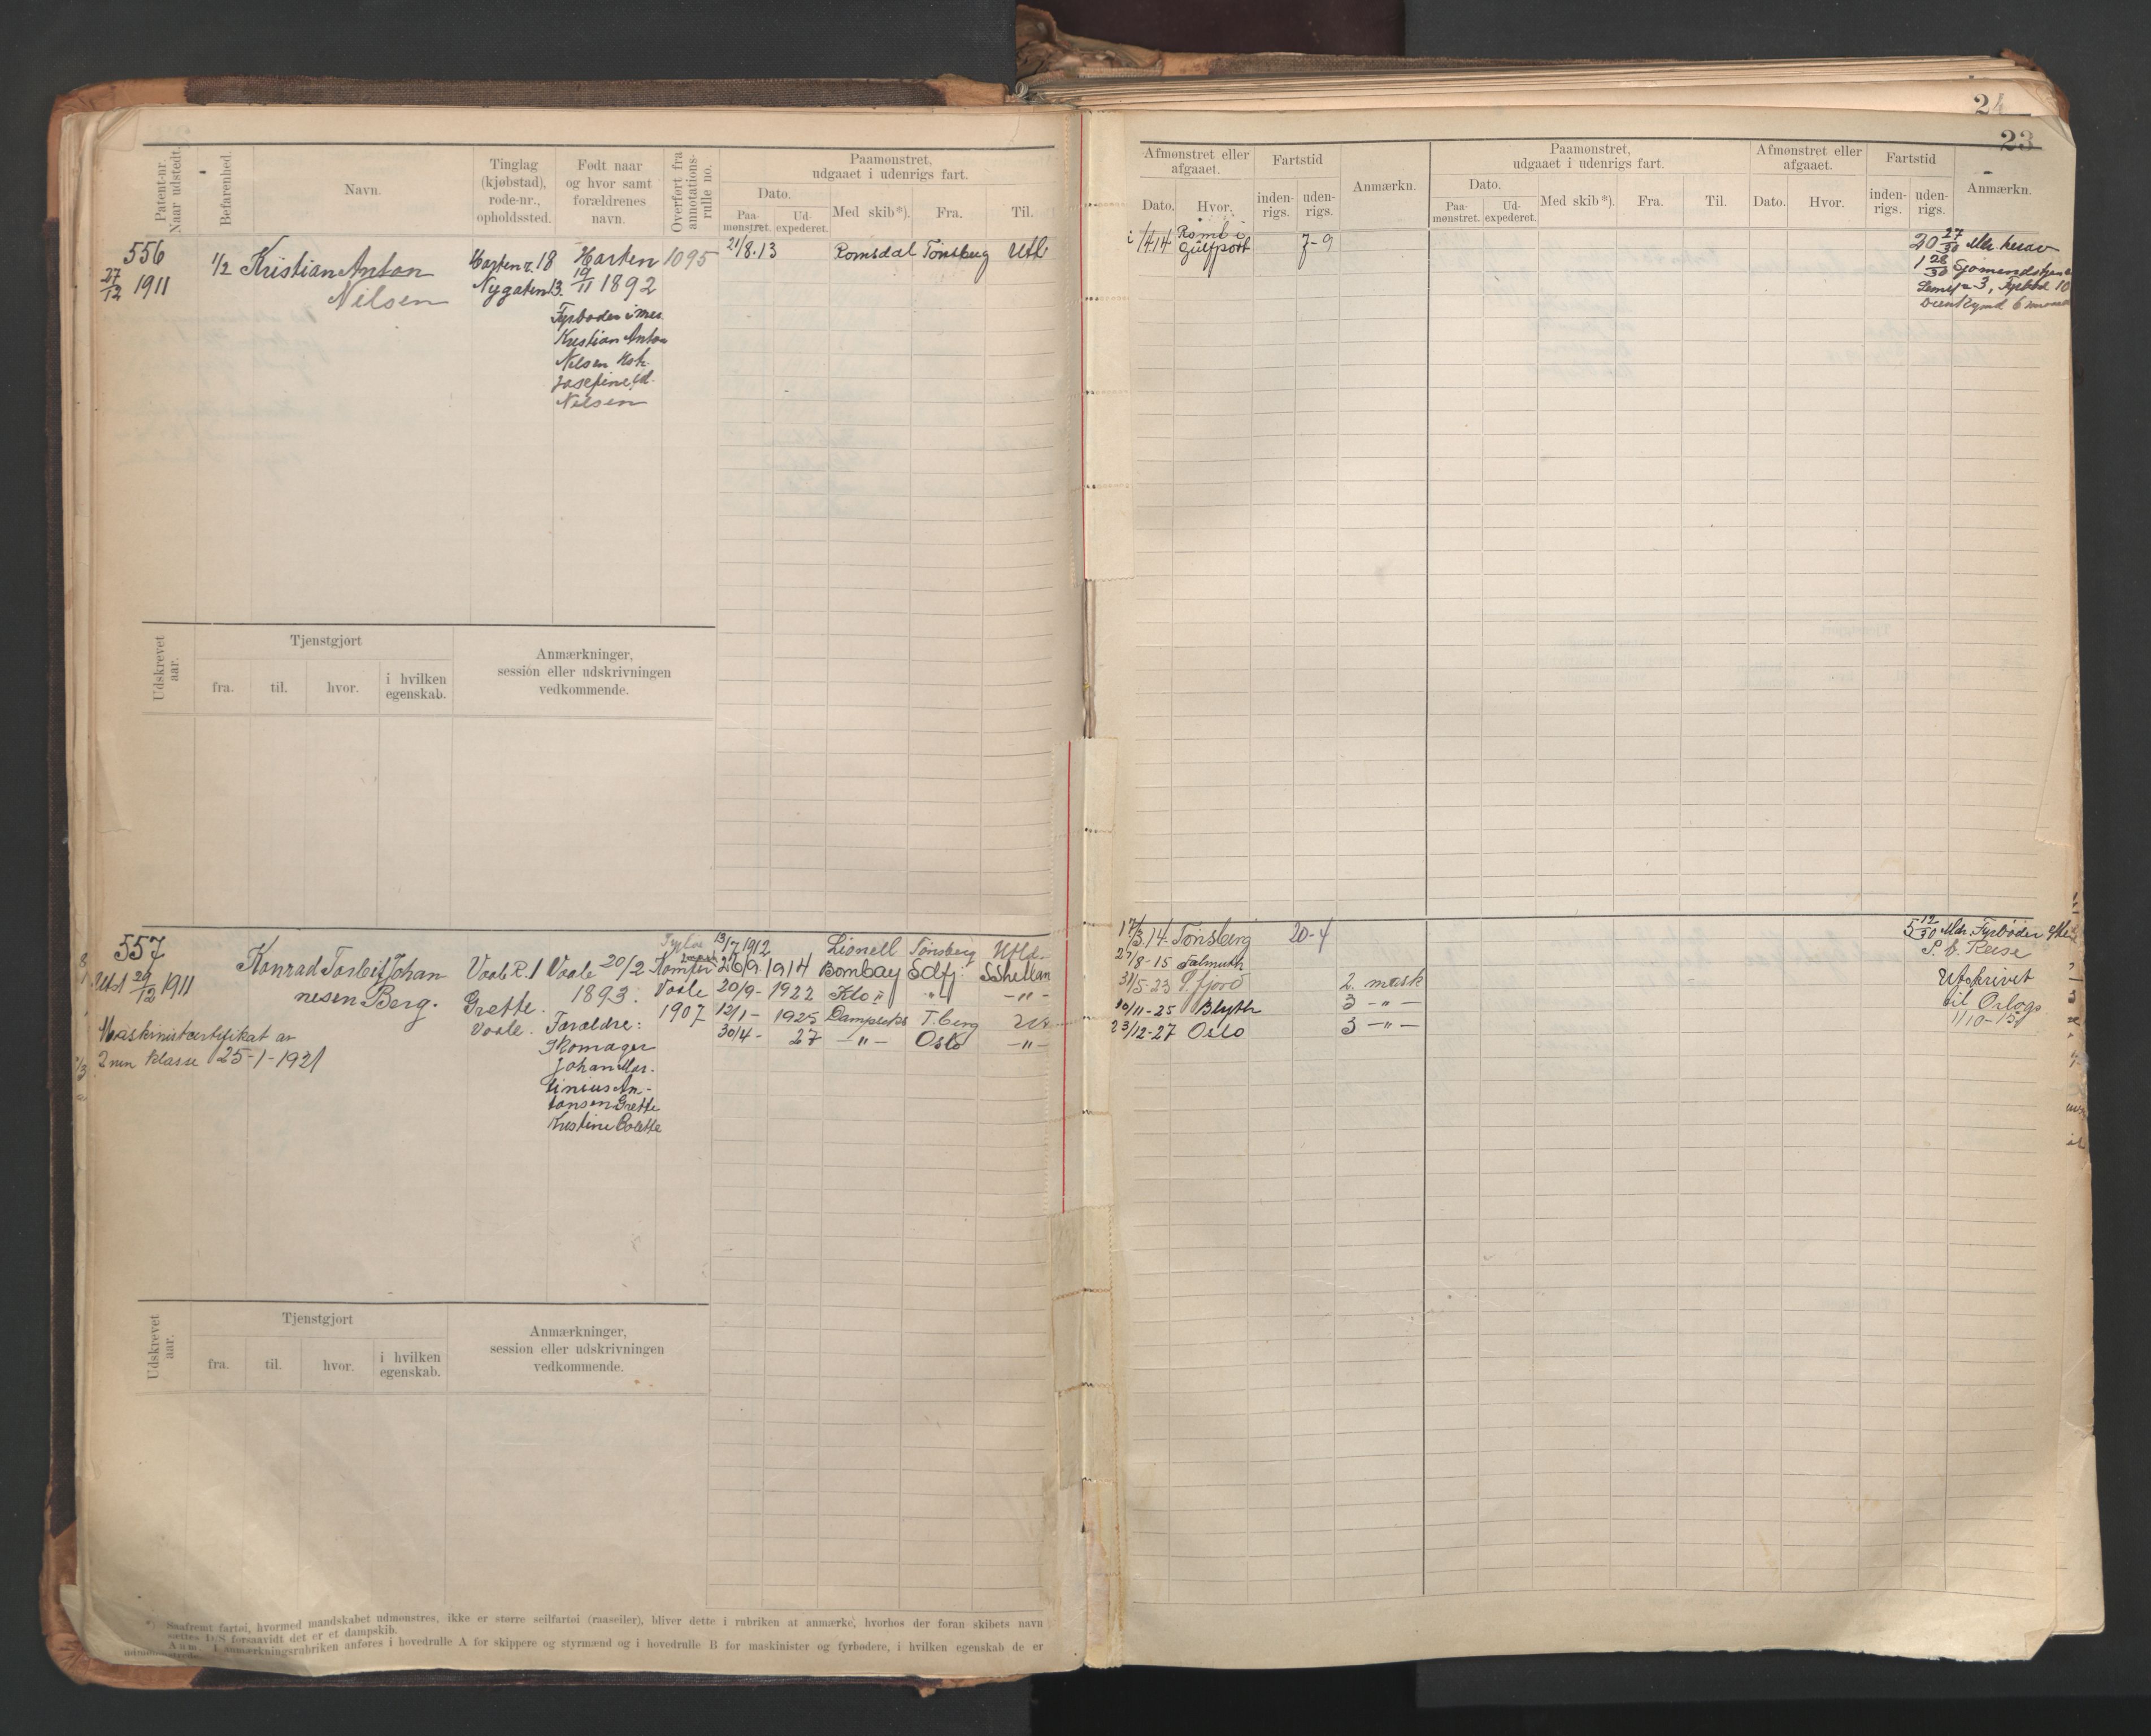 24
23
Patent-nr. Naar udstedt.
Befarenhed.
Navn.
Tinglag (kjøbstad), rode-nr., opholdssted.
Født naar og hvor samt forældrenes navn.
Overført fra annotations-rulle no.
Paamønstret, udgaaet i udenrigs fart.
Dato.
Paa-mønstret.
Ud-expederet.
Med skib*).
Fra.
Til.
Afmønstret eller afgaaet.
Dato.
Hvor.
Fartstid
inden-rigs.
uden-rigs.
Anmærkn.
Paamønstret, udgaaet i udenrigs fart.
Dato.
Paa-mønstret.
Ud-expederet.
Med skib*).
Fra.
Til.
Afmønstret eller afgaaet.
Dato.
Hvor.
Fartstid
inden-rigs.
uden-rigs.
Anmærkn.
556
27/12 1911
1/2
Kristian Anton
Nilsen
Horten r. 18
Nygaten 13.
Horten
19/11 1892
Fyrbøder i
Kristian Anton
Nilsen
Josefine
Nilsen
1095
21/8.13
Romsdal
Tønsberg
Utl.
Gulfport
7-9
20 27/30
1 28/30
Udskrevet aar.
Tjenstgjort
fra.
til.
hvor.
i hvilken egenskab.
Anmærkninger, session eller udskrivningen vedkommende.
557
29/12 1911
Konrad Torleif Johan
nesen Berg.
Maskinistcertifikat av
2nen klasse 25-1-1921
Vaale R. 1
Grette.
Vaale.
Vaale 20/2
1893.
Forældre:
Skomager
Johan Mar-
tinius An-
tonsen Grette
Kristine
Vaale
1907
13/7 1912 Lionell Tønsberg Utld.
26/9. 1914 Bombay Sdfj. S Shetlan
20/9- 1922 Klo " -"-
12/1- 1925 T.berg
30/4- 27 -"- Oslo -"-
17/3.14. Tønsberg 20-4
/8-15 Falmuth
31/5-23 S.fjord 2. mask
10/11-25 Blyth 3 -"-
23/12-27 Oslo 3 -"-
5 12/30 Mdr. Fyrbøder
Reise
Utskrivet
til Orlogs
1/10-15
Udskrevet aar.
Tjenstgjort
fra.
til.
hvor.
i hvilken egenskab.
Anmærkninger, session eller udskrivningen vedkommende.
*) Saafremt fartøi, hvormed mandskabet udmønstres, ikke er større seilfartøi (raaseiler), bliver dette i rubriken at anmærke, hvorhos der foran skibets navn
sættes D/S forsaavidt det er et dampskib.
Anm. I anmærkningsrubriken anføres i hovedrulle A for skippere og styrmænd og i hovedrulle B for maskinister og fyrbødere, i hvilken egenskab de er
udmønstrede.